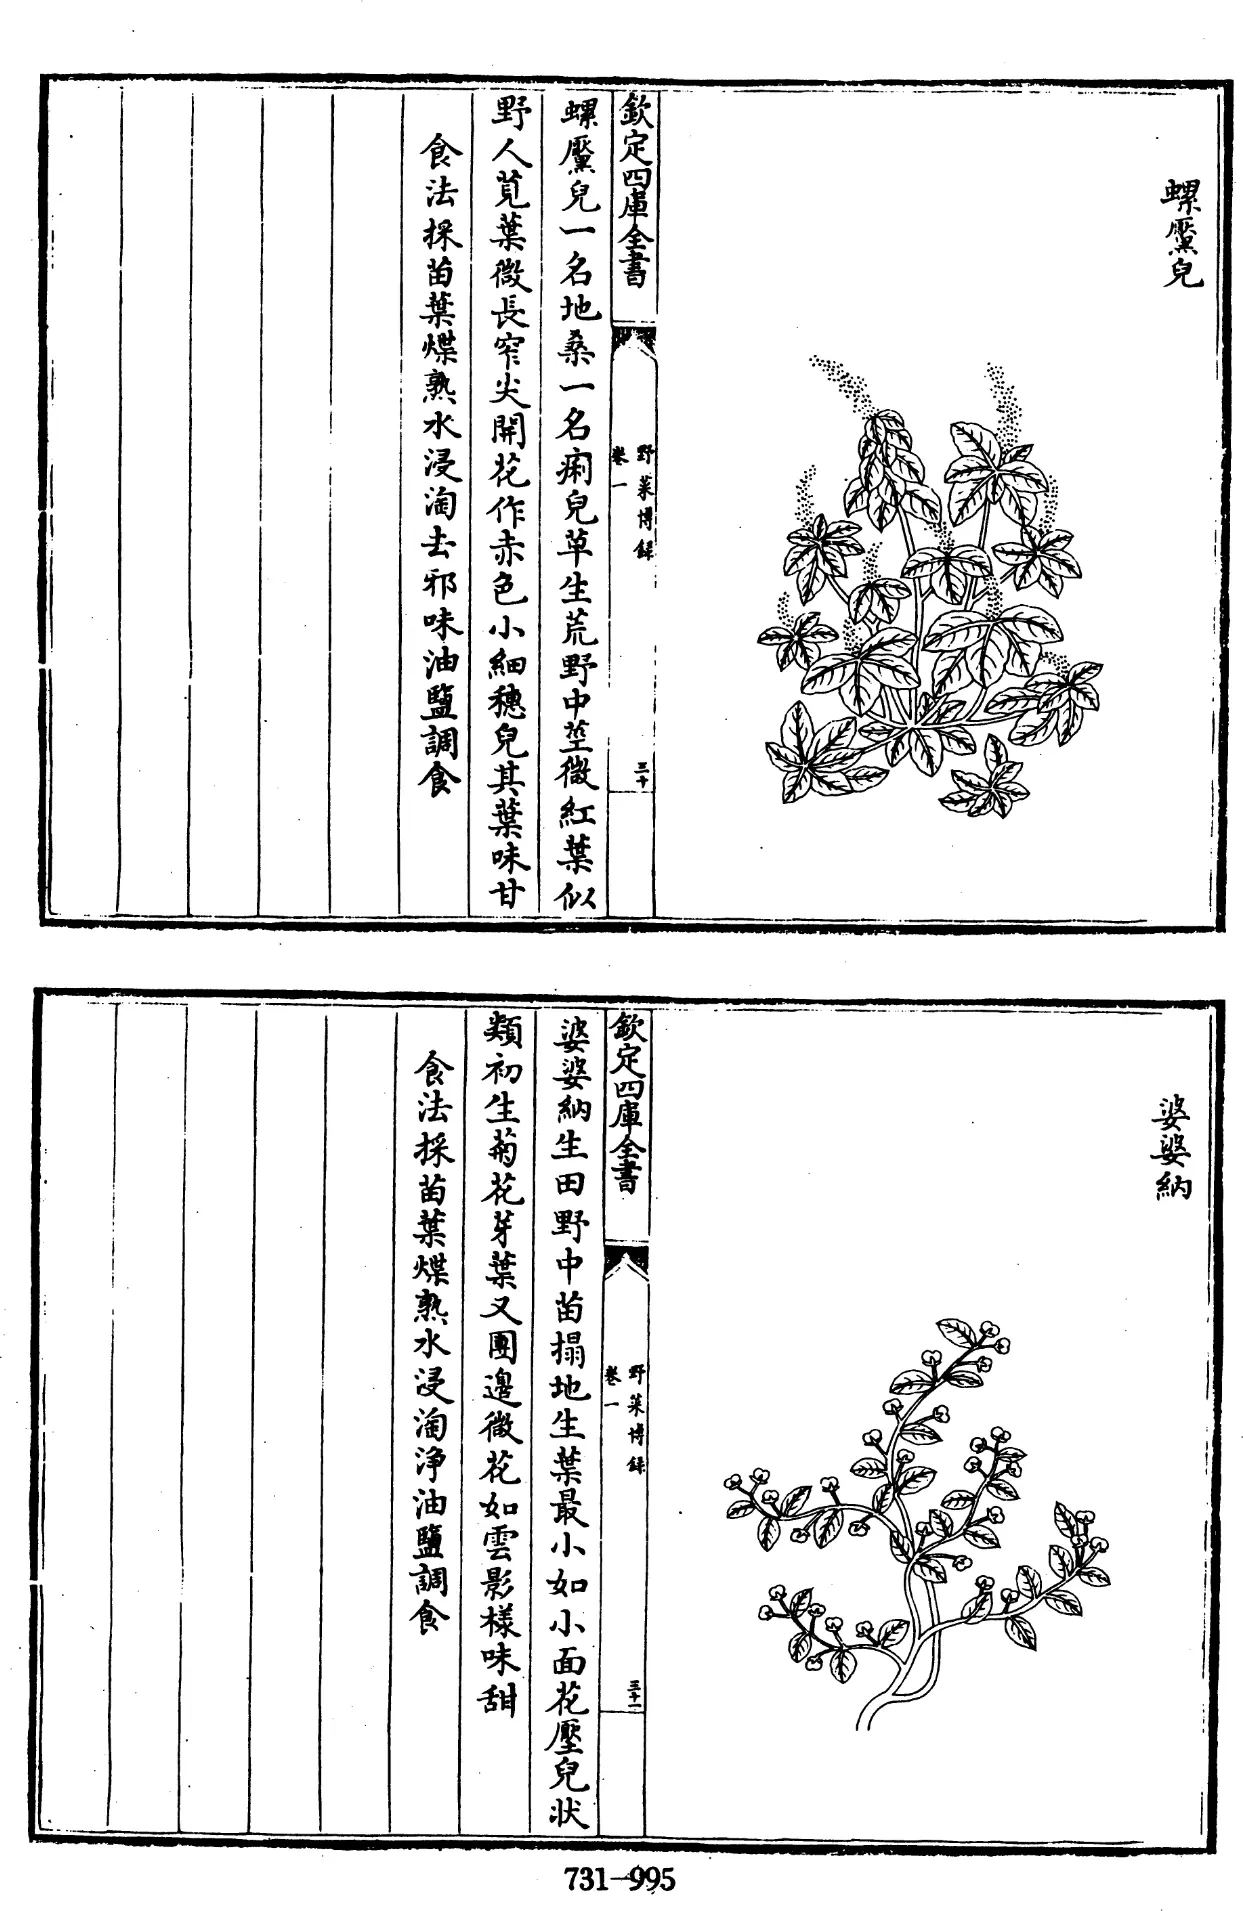 螺黶兒
欽定四庫全書
野菜博録
卷一
三十
螺黶兒一名地桑一名痢兒草生荒野中莖微紅葉似
野人莧葉微長窄尖開花作赤色小細穗兒其葉味甘
食法採苗葉煠熟水浸淘去邪味油鹽調食
婆婆納
欽定四庫全書
野菜博録
卷一
三十一
婆婆納生田野中苗搨地生葉最小如小面花壓兒狀
類初生菊花芽葉又團邊微花如雲影樣味甜
食法採苗葉煠熟水浸淘淨油鹽調食
731-995